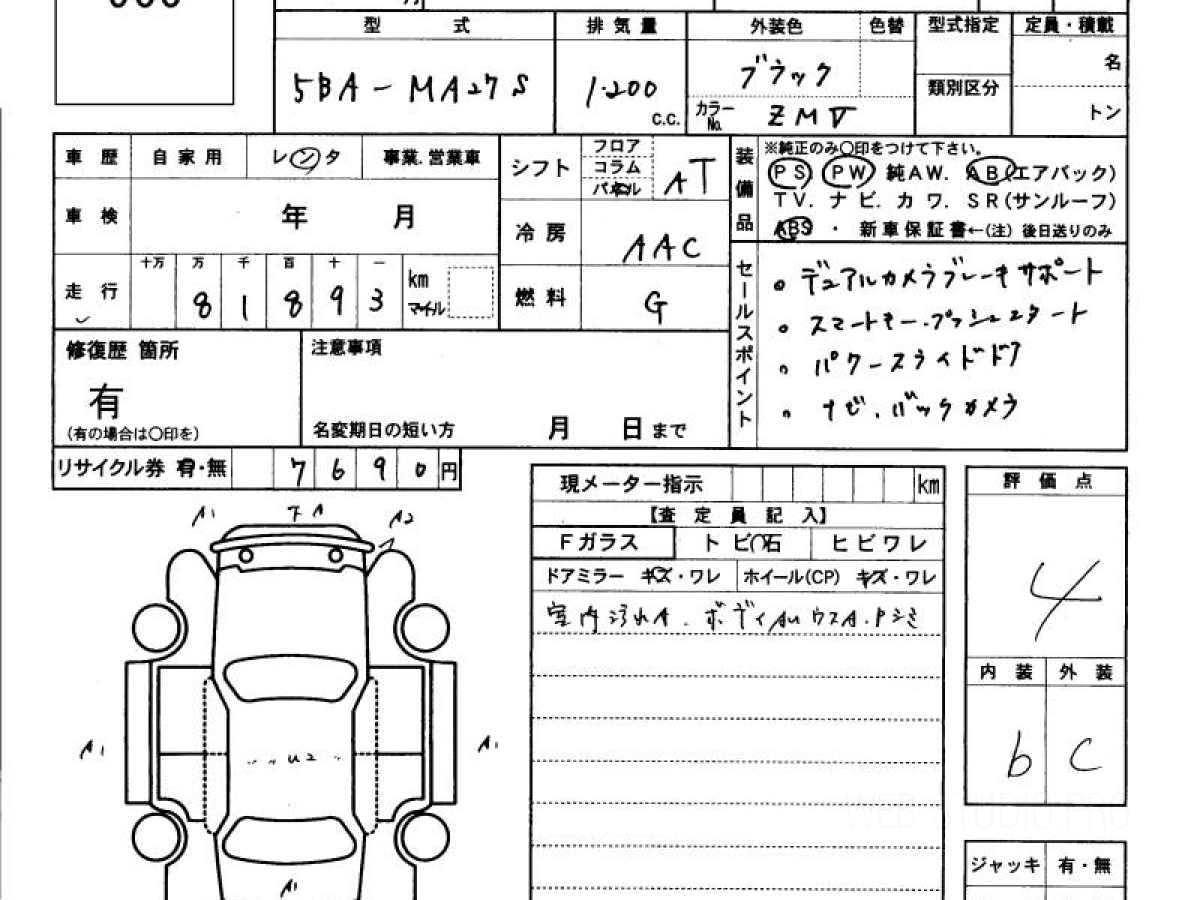 型 式 排気量 外装色 色替 型式指定 定員・積載
5BA-MA27S 1.200 c.c. ブラック 名
カラーNo. ZMV 類別区分 トン
車歴 自家用 レンタ 事業.営業車
車検 年 月
走行 十万 万 千 百 十 一
8 1 8 9 3 km マイル
シフト フロア コラム パネル AT
冷房 AAC
燃料 G
装備品 ※純正のみ〇印をつけて下さい。
PS PW 純AW. AB(エアバック)
TV. ナビ. カワ. SR(サンルーフ)
ABS ・ 新車保証書←(注) 後日送りのみ
セールスポイント
。デュアルカメラブレーキサポート
。スマートキー.プッシュスタート
。パワースライドドア
。ナビ.バックカメラ
修復歴 箇所 注意事項
有
(有の場合は〇印を) 名変期日の短い方 月 日 まで
リサイクル券 有・無 7 6 9 0 円
現メーター指示 km
【査定員記入】
Fガラス トビ石 ヒビワレ
ドアミラー キズ・ワレ ホイール(CP) キズ・ワレ
室内汚れA.ボディAU
評価点
4
内装 外装
b C
A1 A2
A1 U2 A1
A1
ジャッキ 有・無
WEB-STUDIO.PRO